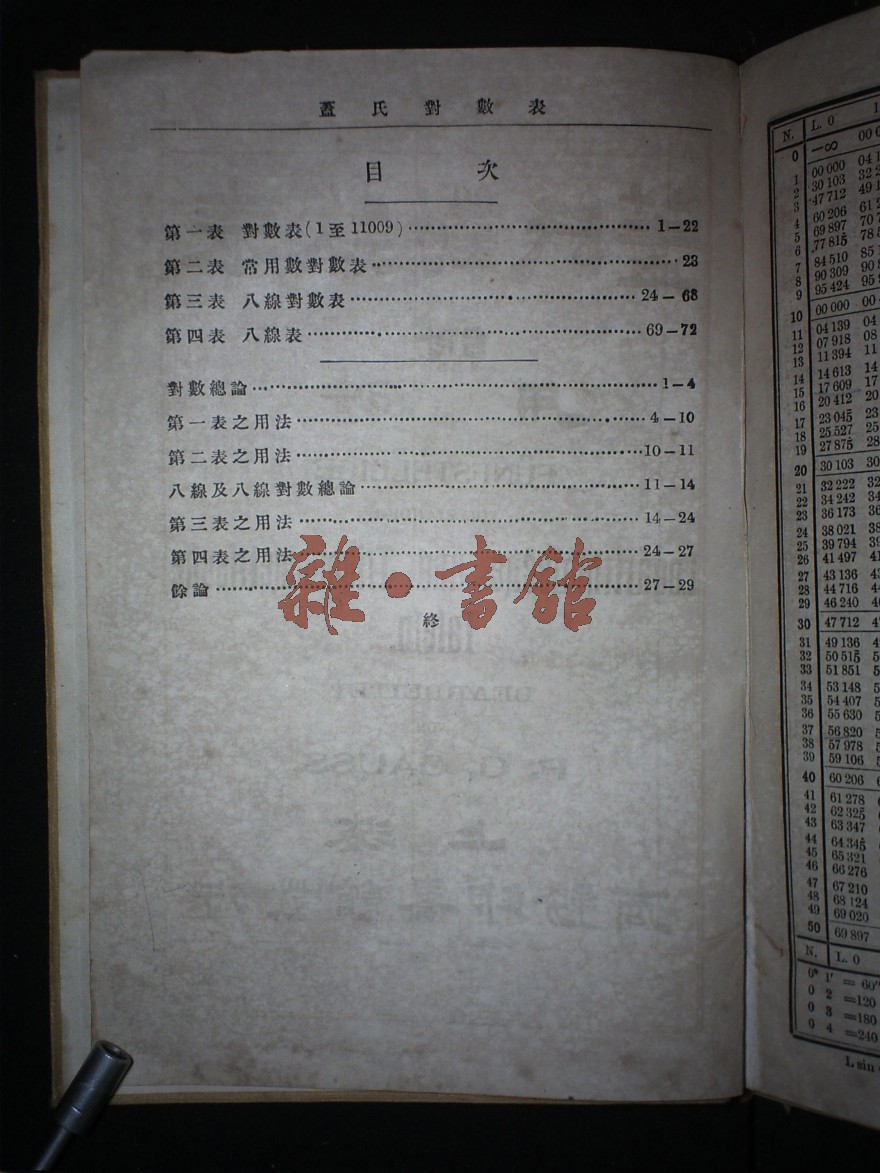 蓋氏對數表
目次
第一表 對數表(1至11009)·······1–22
第二表 常用數對數表·······23
第三表 八線對數表·······24–68
第四表 八線表·······69–72
對數總論·······1–4
第一表之用法·······4–10
第二表之用法·······10–11
八線及八線對數總論·······11–14
第三表之用法·······14–24
第四表之用法·······24–27
餘論·······27–29
終
雜·書館
N. L. 0 1
0 –∞
1 00 000
2 30 103
3 47 712
4 60 206
5 69 897
6 77 815
7 84 510
8 90 309
9 95 424
10 00 000
11 04 139
12 07 918
13 11 394
14 14 613
15 17 609
16 20 412
17 23 045
18 25 527
19 27 875
20 30 103
21 32 222
22 34 242
23 36 173
24 38 021
25 39 794
26 41 497
27 43 136
28 44 716
29 46 240
30 47 712
31 49 136
32 50 515
33 51 851
34 53 148
35 54 407
36 55 630
37 56 820
38 57 978
39 59 106
40 60 206
41 61 278
42 62 325
43 63 347
44 64 345
45 65 321
46 66 276
47 67 210
48 68 124
49 69 020
50 69 897
N. L. 0
0° 1' = 60"
0 2 =120
0 3 =180
0 4 =240
L sin